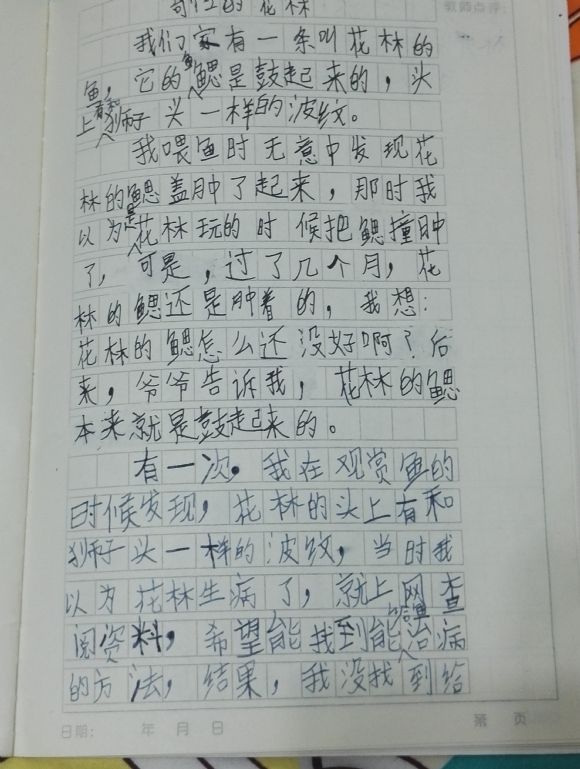 的花林
教师点评：
我们家有一条叫花林的
鱼，它的鱼鳃是鼓起来的，头
上有和狮子头一样的波纹。
我喂鱼时无意中发现花
林的鳃盖肿了起来，那时我
以为是花林玩的时候把鳃撞肿
了，可是，过了几个月，花
林的鳃还是肿着的，我想：
花林的鳃怎么还没好啊？后
来，爷爷告诉我，花林的鳃
本来就是鼓起来的。
有一次，我在观赏鱼的
时候发现，花林的头上有和
狮子头一样的波纹，当时我
以为花林生病了，就上网查
阅资料，希望能找到能治病
的方法，结果，我没找到给
日期： 年 月 日
第 页